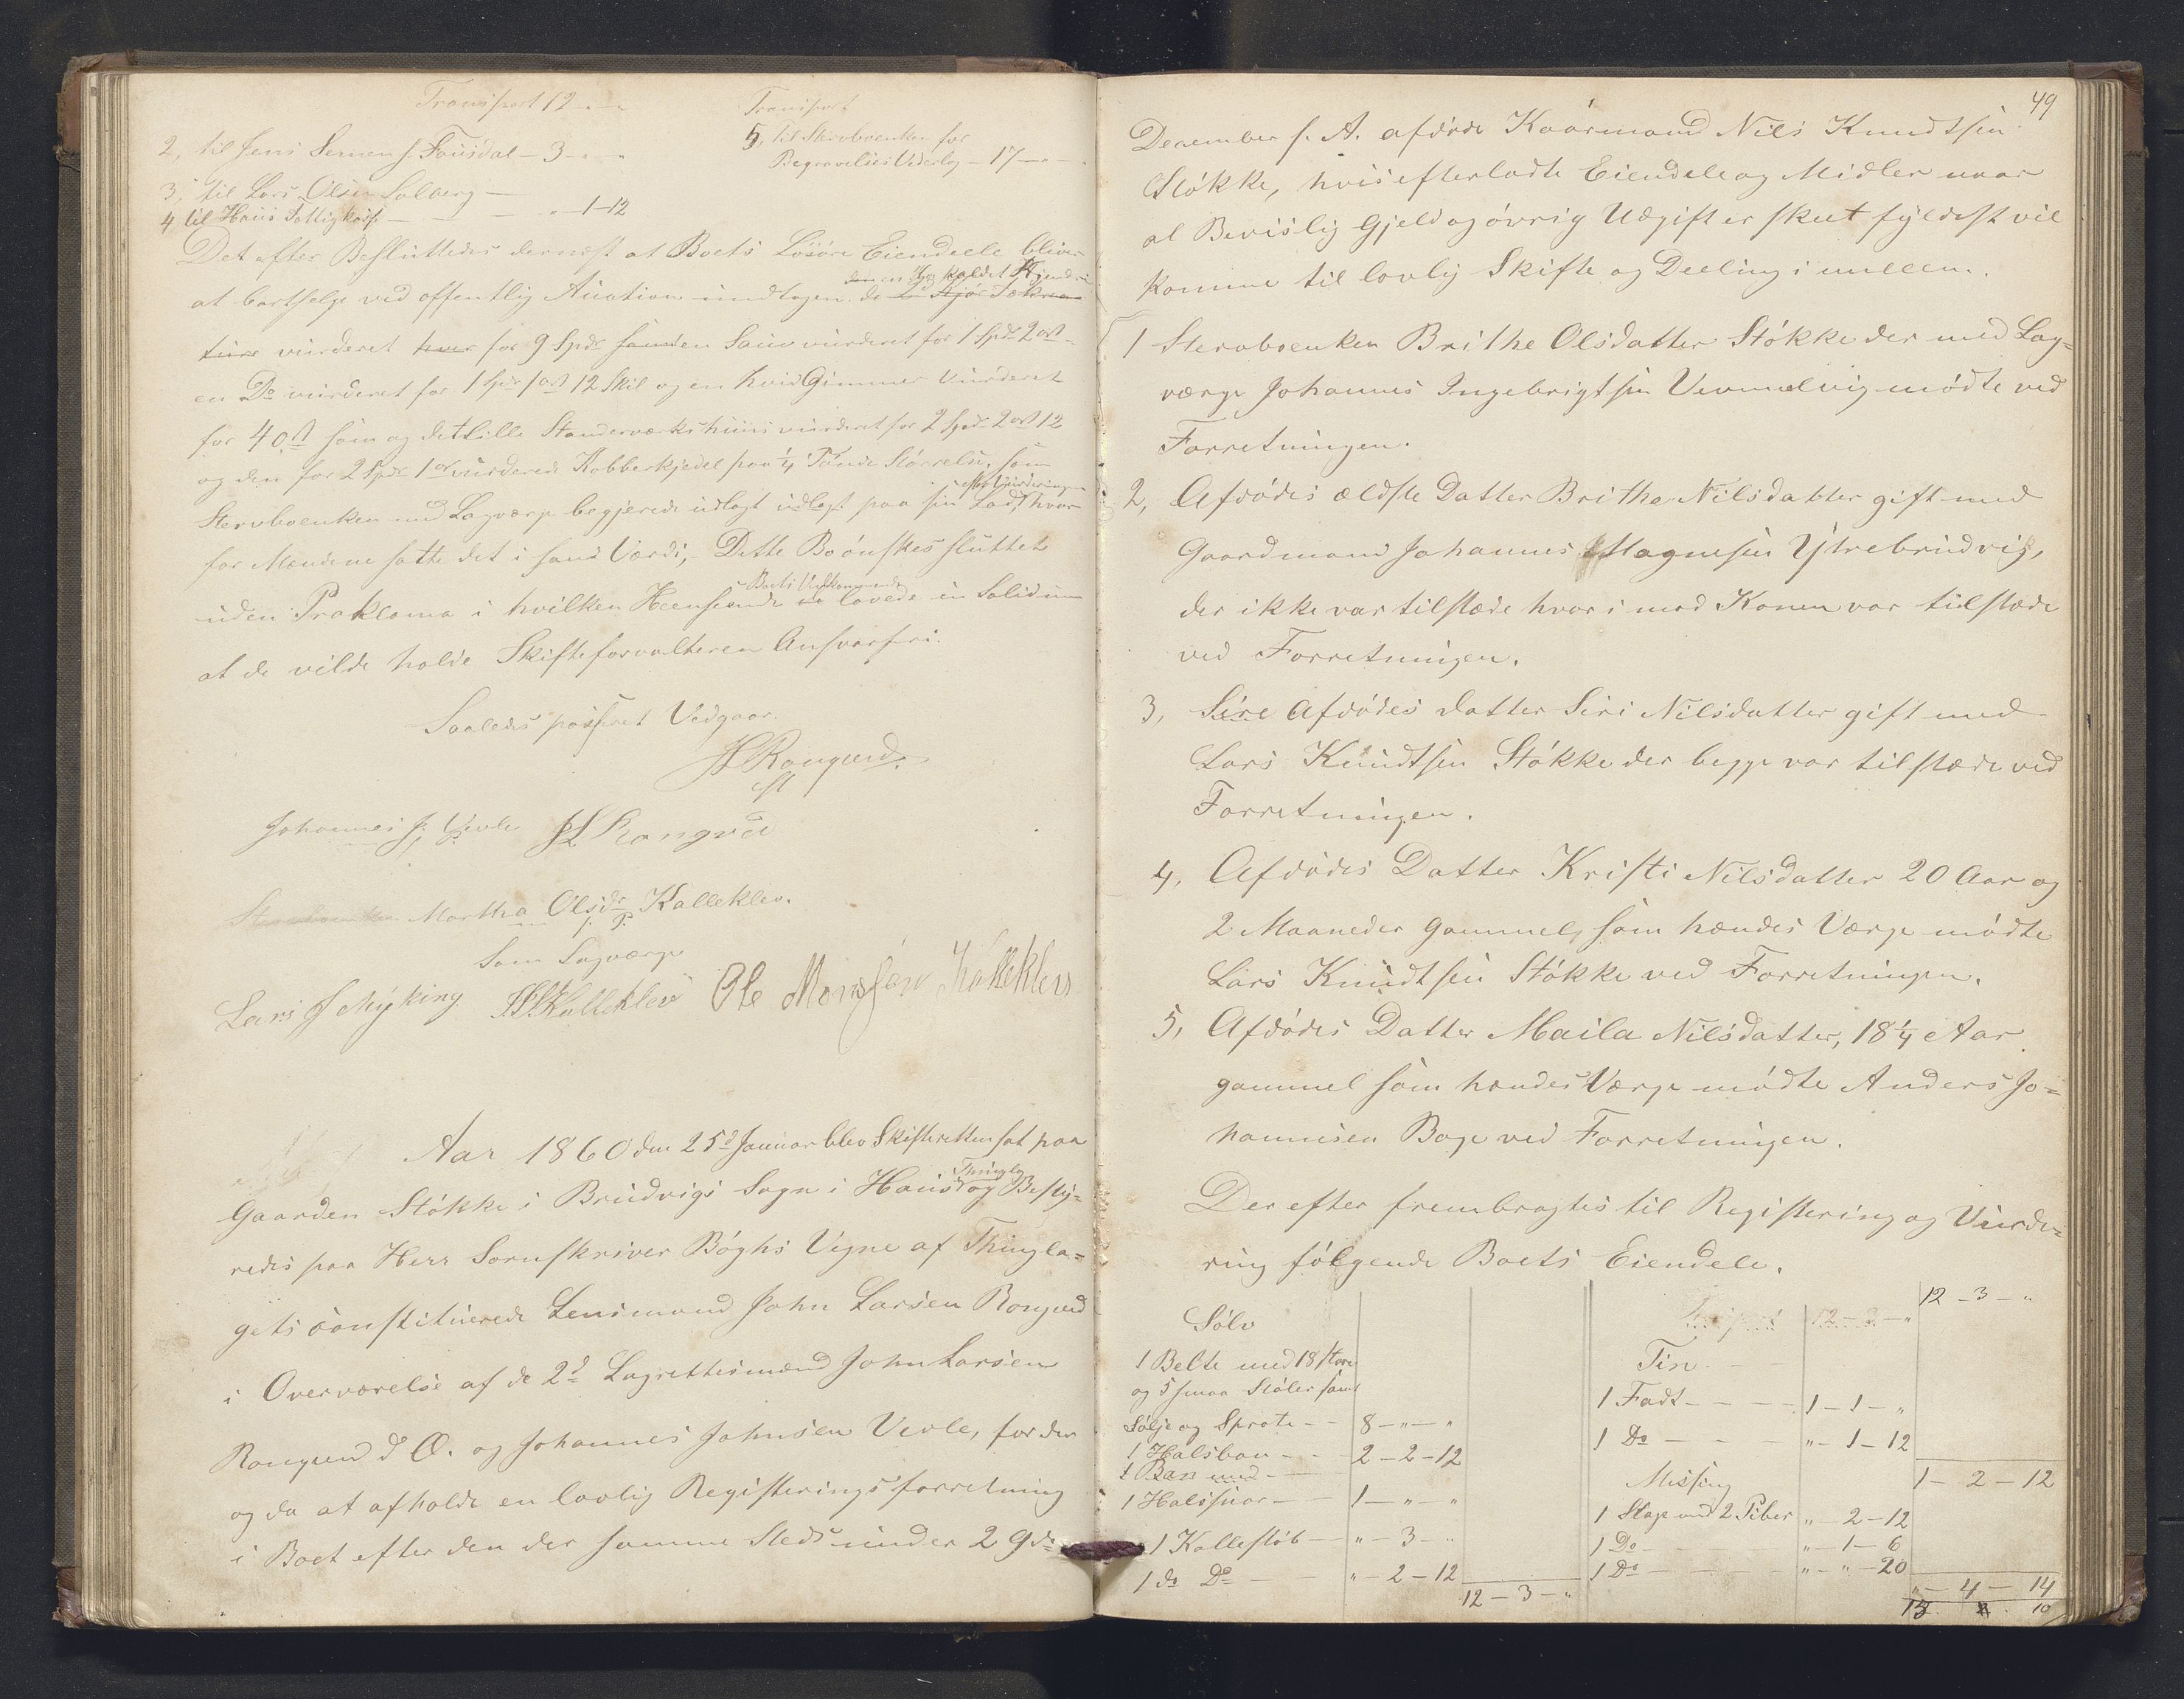 Transport 12 - " - "
2, til Jens Sernen f. Fousdal - 3 - " - "
3, til Lars Olsen Solberg -
4 til Haus Fattigkasse - - - " - 1 - 12
Transport
5, til Stervboenken for
Begravelses Vederlag - 17 - " - "
Det efter Besluttedes dernæst at Boets Løsøre Eiendeele bliver
at bortselge ved offentlig Auction undtagen
vurderet for 9 Spdr en Sau vurderet for 1 Spdr 2 ort
en Do vurderet for 1 Spdr 1 ort 12 Skil og en hvid Gimmer vurderet
for 4 ort som og det lille Standerværkshuus vurderet for 2 Spdr 2 ort 12
og den for 2 Spdr 1 ort vurderede Kobberkjedel paa 1/4 Tønde Størrelse, som
Stervboenken med Lagværge begjerede udlagt udlagt paa sin Lod efter Vurderingen, hvor
for Mændene satte det i sand Værdi, Dette Bo ønskes sluttet
uden Proklama i hvilken Heenseende Boets Vedkommende lovede in Solidum
at de vilde holde Skifteforvalteren Ansvarsfri.
Saaledes passeret Vedgaar.
JL Rongved
cst
Johannes J. Vevle JL Rongved
m. f. P.
Stervboenken Martha Olsdr Kalleklev.
m. f. P.
Som Lagværge
Lars J Myking Kalleklev Ole Monssen Kalleklev
Aar 1860 den 25d Januar blev Skifteretten sat paa
Gaarden Støkke i Brudvigs Sogn i Haus Thinglag og Besty=
redes paa Herr Sorenskriver Bøghs Vegne af Thingla=
gets constituerede Lensmand John Larsen Rongved
i Overværelse af de 2de Lagrettesmænd John Larsen
Rongved d. Æ. og Johannes Johnsen Vevle, for der
og da at afholde en lovlig Registeringsforretning
i Boet efter den der samme Steds under 29de
49
December f. A. afdøde Kaarmand Nils Knudtsen
Støkke, hvis efterladte Eiendele og Midler naar
al Bevislig Gjeld og øvrig Udgift er skeet fyldest vil
komme til lovlig Skifte og Deeling i mellem.
1 Stervboenken Brithe Olsdatter Støkke der med Lag=
værge Johannes Ingebrigtsen Vevmelvig mødte ved
Forretningen.
2, Afdødes ældste Datter Brithe Nilsdatter gift med
Gaardmand Johannes Magnesen Ytrebrudvig,
der ikke var tilstæde hvor i mod Konen var tilstæde
ved Forretningen.
3, Sire Afdødes datter Siri Nilsdatter gift med
Lars Knudtsen Støkke der begge var tilstæde ved
Forretningen.
4, Afdødes Datter Kristi Nilsdatter 20 Aar og
2 Maaneder gammel, som hendes Værge mødte
Lars Knudtsen Støkke ved Forretningen.
5, Afdødes Datter Maila Nilsdatter, 18 1/4 Aar
gammel som hendes Værge mødte Anders Jo=
hannesen Boge ved Forretningen.
Derefter frembragtes til Registering og Vurde=
ring følgende Boets Eiendele.
Sølv
1 Belte med 18 store
og 5 smaa Støler samt
Sølje og Sprote - - 8 - " - "
1 Halsbon - - 2 - 2 - 12
1 Ban med -
1 Halssnor - - 1 - " - "
1 Kallestøb - " - 3 - "
1 do Do - - " - 2 - 12
12 - 3 - "
Transport 12 - 3 - "
12 - 3 - "
Tin
1 Fadt - - - 1 - 1 - "
1 Do - - - " - 1 - 12
1 - 2 - 12
Messing
1 Stage med 2 Piber " - 2 - 12
1 Do - " - 1 - 6
1 Do - - - " - " - 20
" - 4 - 14